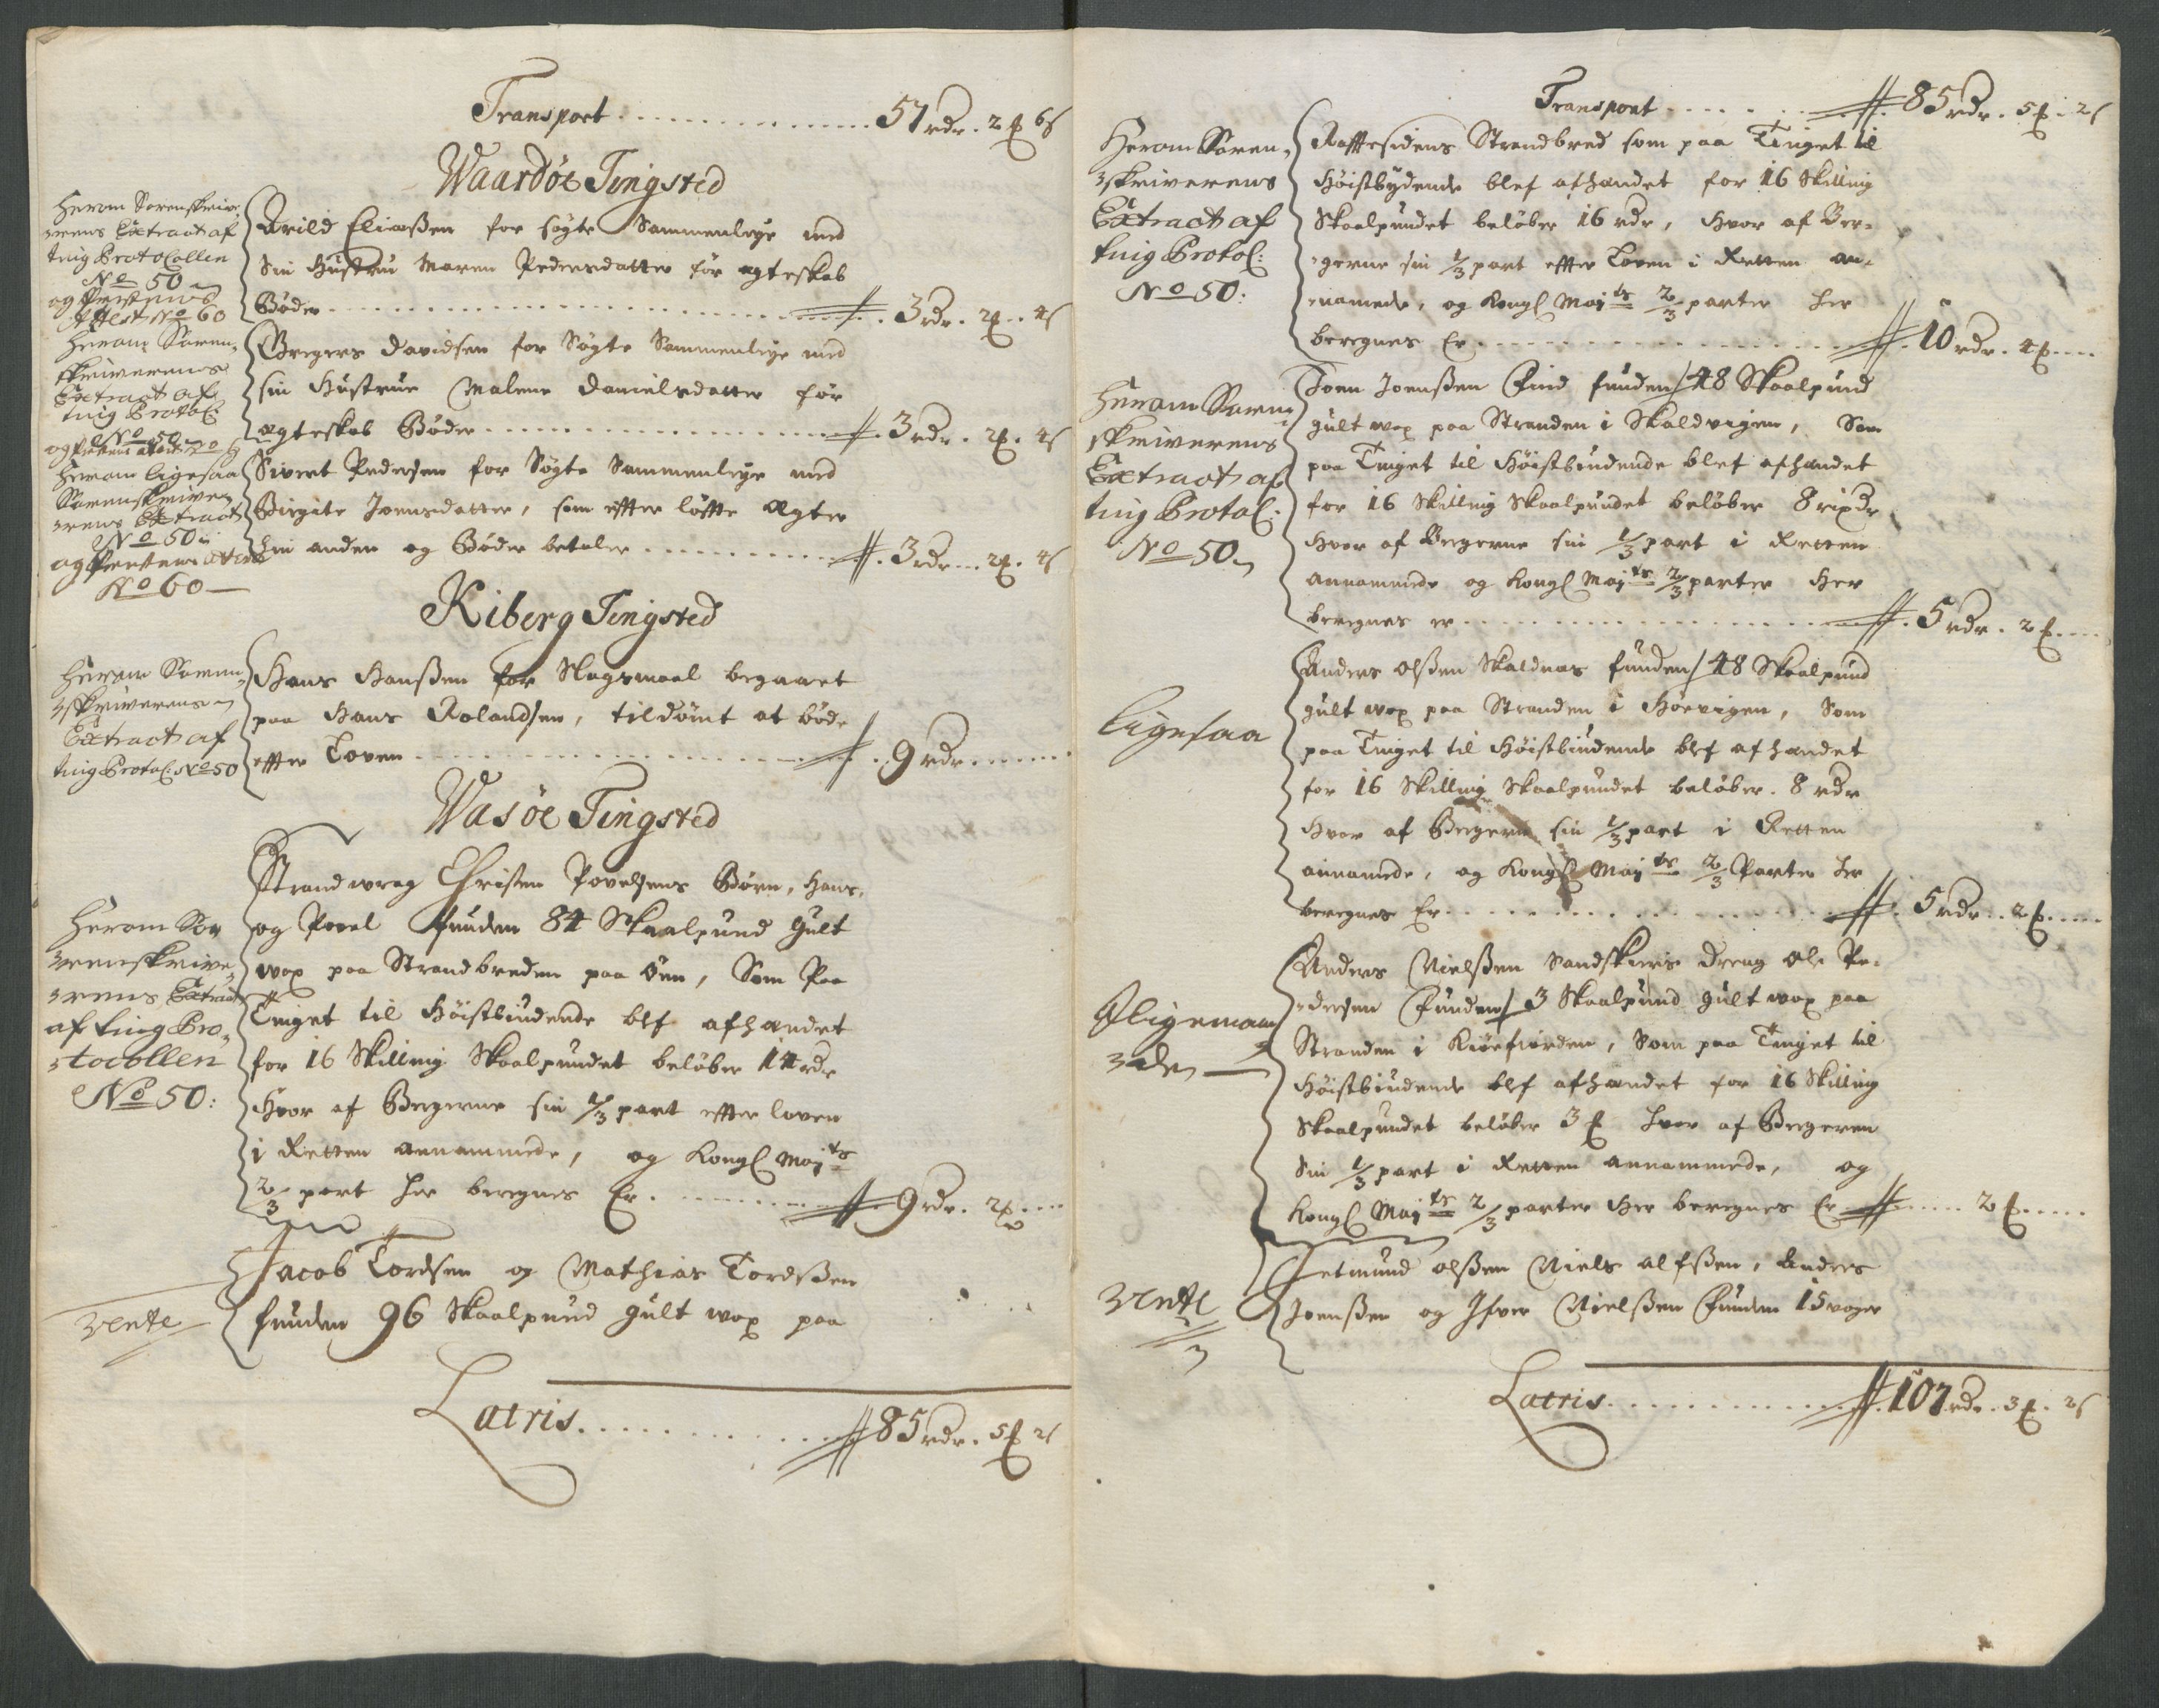 Transport . . . . . 57 rdr. 2 ƒ 6 s
Waardöe Tingsted
Herom Sorenskrive-
rens Extract af
ting Protocollen
No 50
og Prestens
Attest No 60
Arild Eliaßen for søgte Sammenleye med
Sin Hustru Maren Pedersdatter før egteskab
Bøder . . . . . 3 rdr. 2 ƒ. 4 s
Herom Soren-
skriwerens
Extract af
ting Protol:
No 50
og Prestens attest No 60
Gregers Davidsen for Søgte Sammenleye med
sin Hustrue Malene Danielsdatter før
egteskab Bøder . . . . . 3 rdr. 2 ƒ. 4 s
Herom ligesaa
Sorenskriwe-
rens Extract
No 50
og Prestens attest
No 60
Sivert Pedersen for Søgte Sammenleye med
Birgite Joensdatter, som effter løffte Egter
hin anden og Bøder betaler . . . . . 3 rdr. 2 ƒ. 4 s
Kiberg Tingsted
Herom Soren-
skriwerens
Extract af
ting Protol: No 50
Hans Hanßen for Slagsmaal begaaet
paa Hans Rolandsen, tildömt at böde
effter Loven . . . . . 9 rdr. . . .
Wasöe Tingsted
Herom Soe
renskriwe-
rens Extract
af ting Pro-
tocollen
No 50:
Strandwrag Christen Povelsens Börn, Hans,
og Povel funden 84 Skaalpund Gult
wox paa Strandbreden paa öen, Som Paa
Tinget til Höistbiudende blef afhandet
for 16 Skilling Skaalpundet belöber 14 rdr
Hvor af Bergerne sin 1/3 part effter loven
i Retten annammede, og Kongl Mayts
2/3 part her beregnes Er . . . . . 9 rdr. 2 ƒ. . .
rente
Jacob Tordsen og Mathias Tordsßen
funden 96 Skaalpund gult wox paa
Latris . . . . . 85 rdr. 5 ƒ 2 s
Transport . . . . . 85 rdr. 5 ƒ. 2 s
Herom Soren-
skriwerens
Extract af
ting Protol:
No 50:
Strandbred som paa Tinget til
Höistbydende blef afhandet for 16 Skilling
Skaalpundet belöber 16 rdr, Hvor af Ber-
gerne sin 1/3 part effter Loven i Retten an-
namede, og Kongl Mayts 2/3 parter her
beregnes Er . . . . . 10 rdr. 4 ƒ. . .
Herom Soren-
skriwerens
Extract af
ting Protol:
No 50
Joen Joenßen Find funden 48 Skaalpund
gult wox paa Stranden i Skaldvigen, Som
paa Tinget til Höistbiudende blef afhandet
for 16 Skilling Skaalpundet belöber 8 rixdr
Hvor af Bergerne sin 1/3 part i Retten
annammede og Kongl Mayts 2/3 parter Her
beregnes er . . . . . 5 rdr. 2 ƒ. . .
Ligesaa
Anders Olßen Skaldnæs funden 48 Skaalpund
gult wox paa Stranden i Hoevigen, Som
paa Tinget til Höistbiudende blef afhandet
for 16 Skilling Skaalpundet belöber. 8 rdr
Hvor af Bergerne sin 1/3 part i Retten
annamede, og Kongl Mayts 2/3 Parter her
beregnes Er . . . . . 5 rdr. . 2 ƒ. . .
I ligemaa-
de
Anders Nielßen Sandskiers dreng Ole Pe-
dersen Funden 3 Skaalpund gult wox paa
Stranden i Kiöefiorden, Som paa Tinget til
Höistbiudende blef afhandet for 16 Skilling
Skaalpundet belöber 3 ƒ hvor af Bergeren
Sin 1/3 part i Retten annammede, og
Kongl Mayts 2/3 parter Her beregnes Er . . . . . 2 ƒ. . . .
rente
Olßen Niels alfßen, Anders
Joenßen og Ifver Nielßen Funden 15 voger
Latris . . . . . 107 rdr. 3 ƒ. 2 s